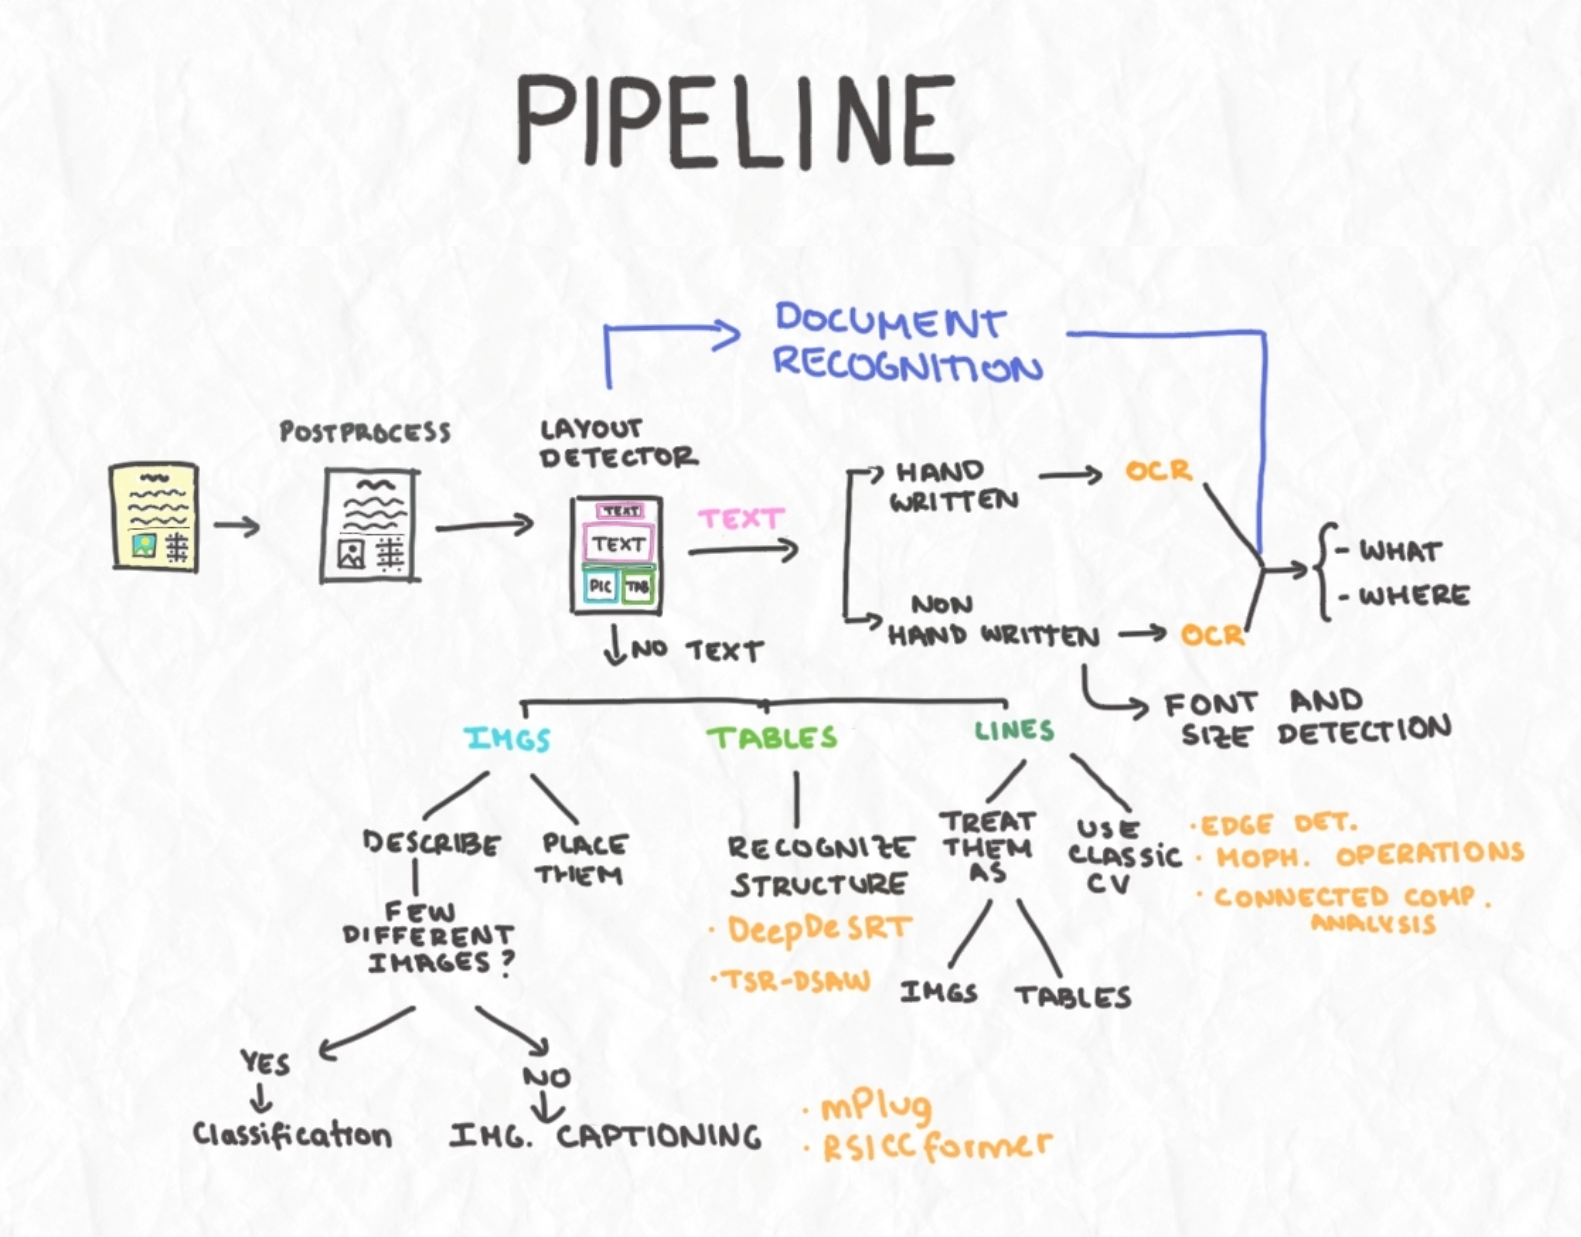 PIPELINE
DOCUMENT
RECOGNITION
POSTPROCESS
LAYOUT
DETECTOR
TEXT
TEXT
PIC
TAB
TEXT
HAND
WRITTEN
OCR
NON
HAND WRITTEN
OCR
- WHAT
- WHERE
FONT AND
SIZE DETECTION
NO TEXT
IMGS
TABLES
LINES
DESCRIBE
PLACE
THEM
FEW
DIFFERENT
IMAGES?
YES
Classification
NO
IMG. CAPTIONING
· mPlug
· RSICCformer
RECOGNIZE
STRUCTURE
· DeepDeSRT
· TSR-DSAW
TREAT
THEM
AS
IMGS
TABLES
USE
CLASSiC
CV
· EDGE DET.
· MOPH. OPERATIONS
· CONNECTED COMP.
ANALYSIS